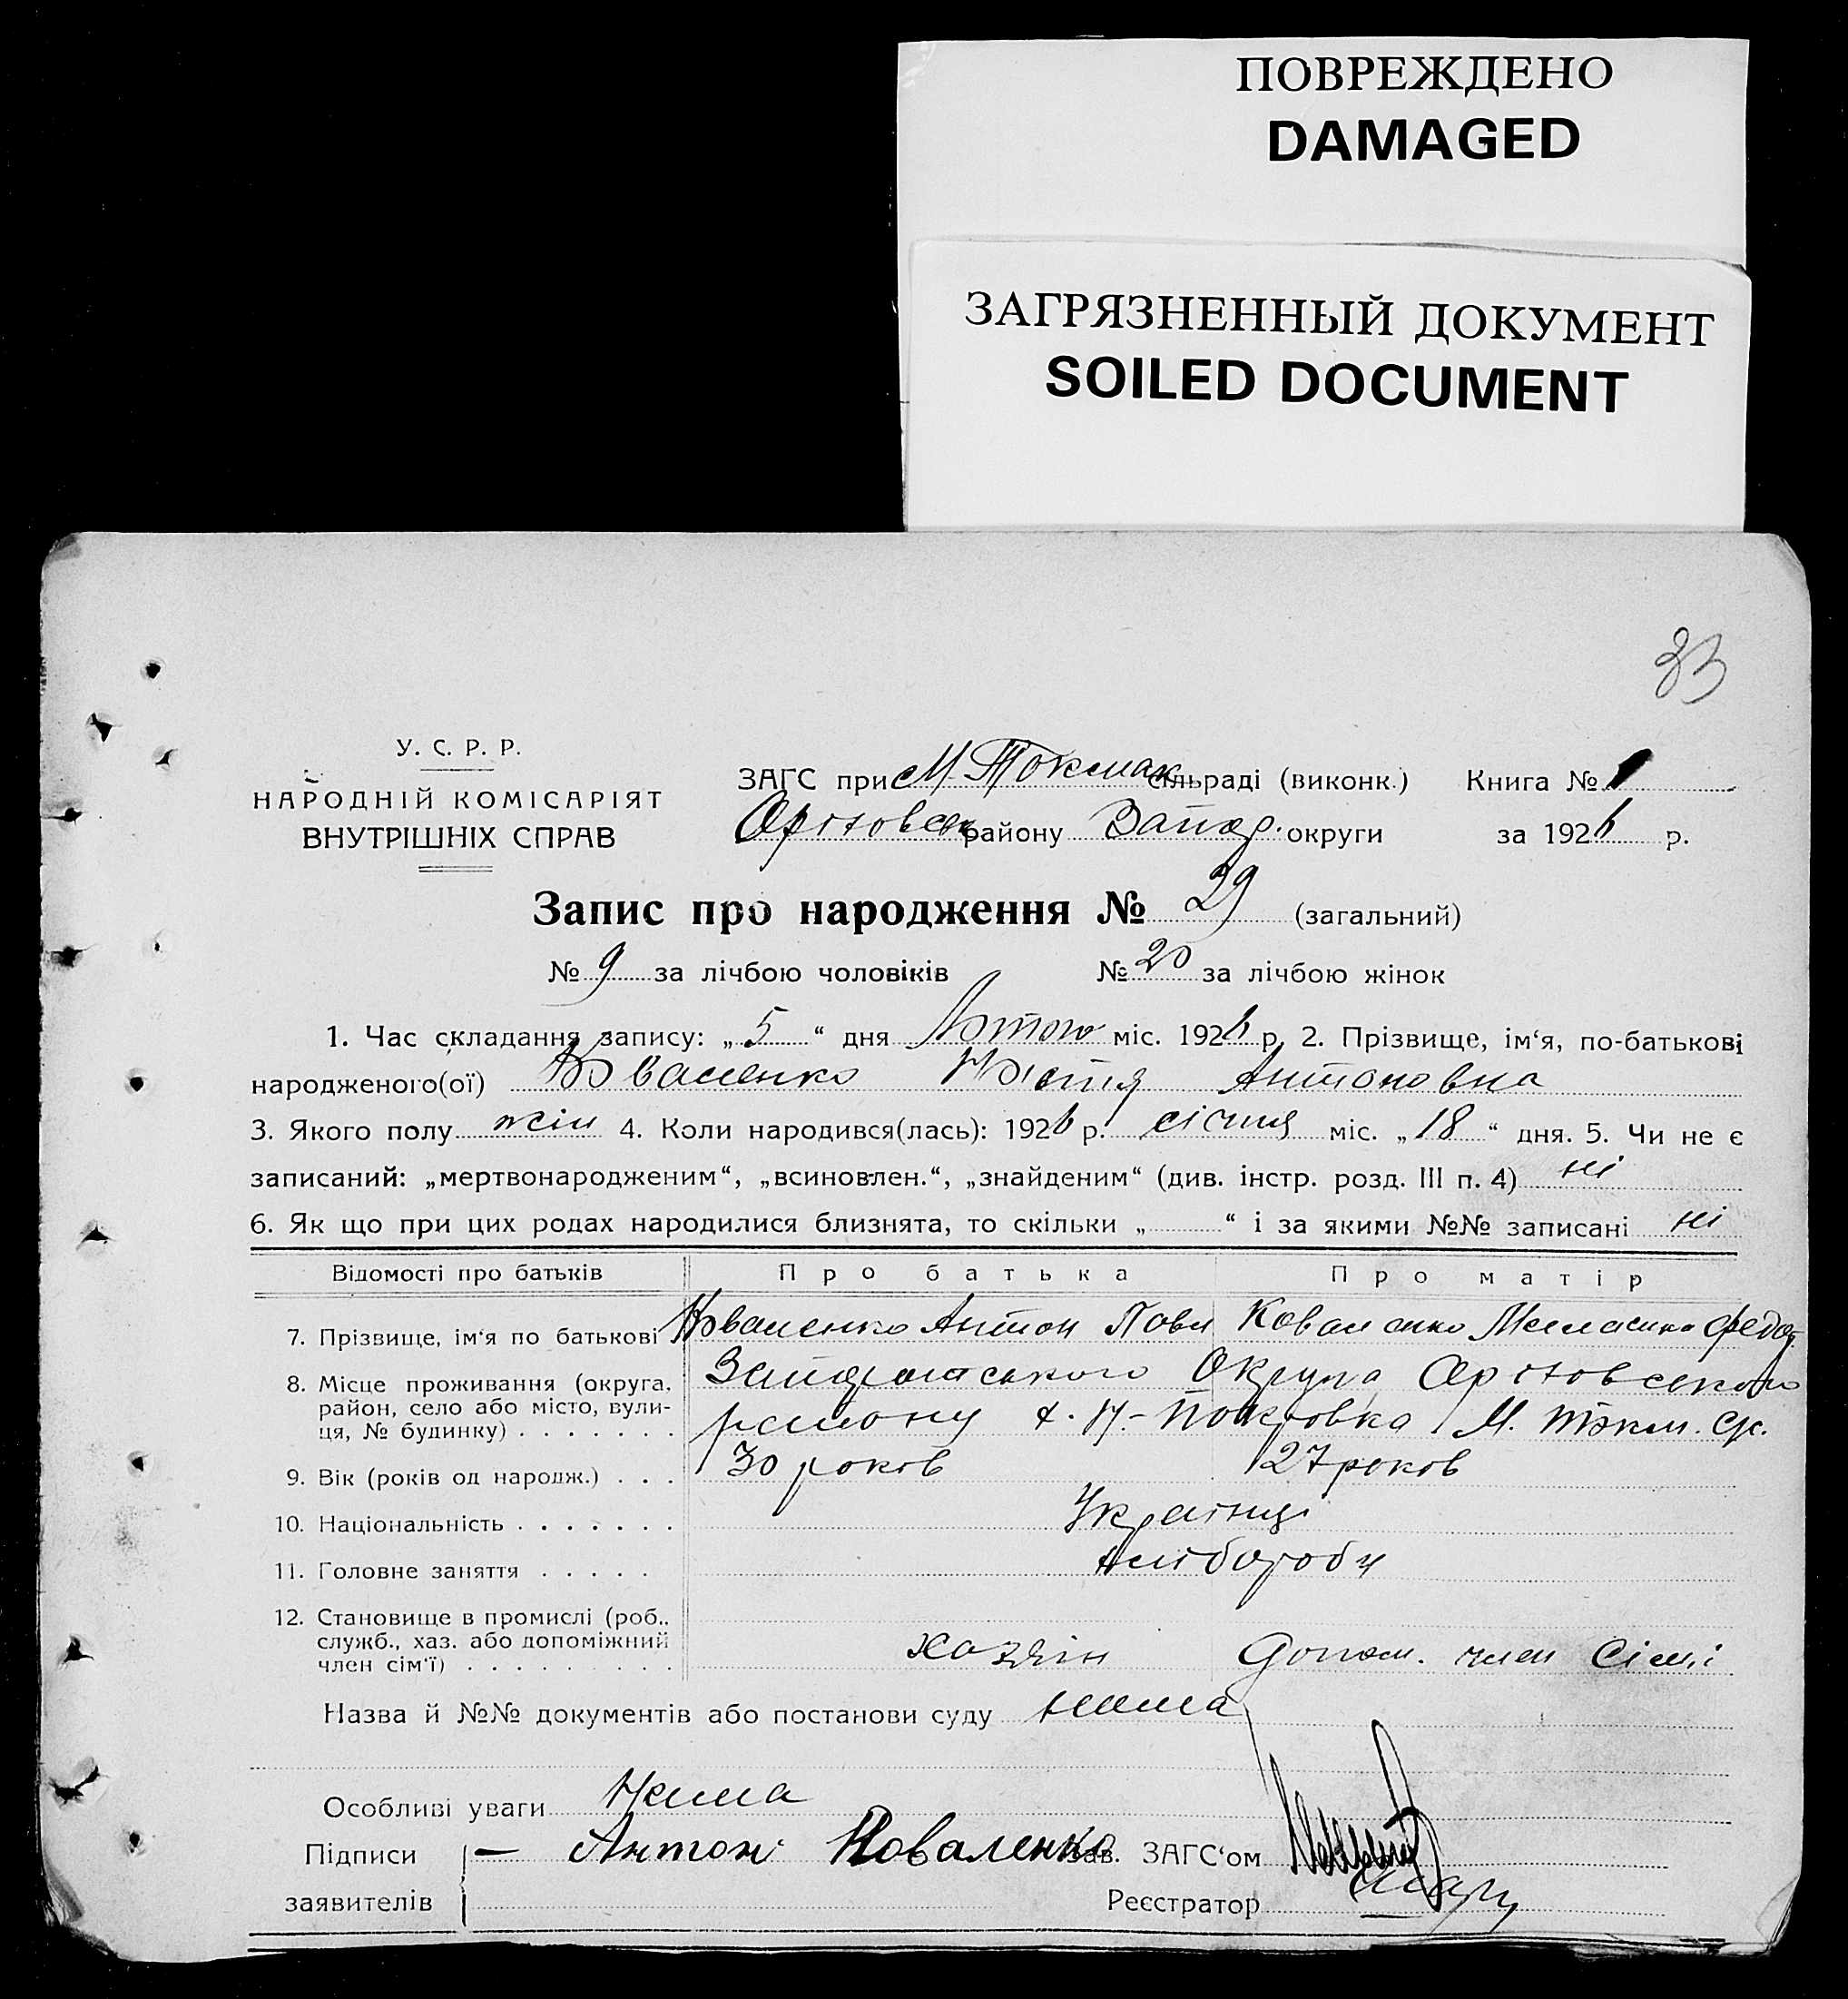 ПОВРЕЖДЕНО
DAMAGED
ЗАГРЯЗНЕННЫЙ ДОКУМЕНТ
SOILED DOCUMENT
33
У. С. Р. Р.
НАРОДНІЙ КОМІСАРІЯТ
ВНУТРІШНІХ СПРАВ
ЗАГС при М-Токмак сільраді (виконк.) Книга № 1
Оріховськ району Запор. округи за 1926 р.
Запис про народження № 29 (загальний)
№ 9 за лічбою чоловіків № 20 за лічбою жінок
1. Час складання запису: „5“ дня Лютого міс. 1926 р. 2. Прізвище, ім‘я, по-батькові
народженого(ої) Коваленко Антоновна
3. Якого полу жін 4. Коли народився(лась): 1926 р. січня міс. „18“ дня. 5. Чи не є
записаний: „мертвонародженим“, „всиновлен.“, „знайденим“ (див. інстр. розд. III п. 4) ні
6. Як що при цих родах народилися близнята, то скільки „ “ і за якими №№ записані ні
Відомості про батьків Про батька Про матір
7. Прізвище, ім‘я по батькові Коваленко Антон Павл Коваленко Федот
8. Місце проживання (округа, район, село або місто, вулиця, № будинку) Запоріжського Округа Оріховського
району х. Н-Покровка М. Токм. с/р.
9. Вік (років од народж.) 30 років 27 років
10. Національність Українці
11. Головне заняття хлібороби
12. Становище в промислі (роб.,
служб., хаз. або допоміжний
член сім‘ї) хазяїн допом. член сімї
Назва й №№ документів або постанови суду нема
Особливі уваги Нема
Підписи — Антон Коваленко Зав. ЗАГС‘ом
заявителів Реєстратор